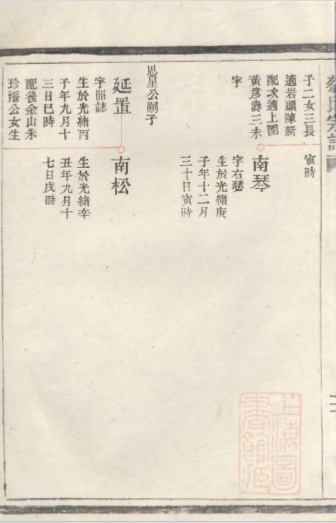 子二女三長
適岩頭陳新
配次適上圖
黃彥壽三未
字
寅時
南琴
字右瑟
生於光緒庚
子年十二月
三十日寅時
恩星公嗣子
延置
字
誌
生於光緒丙
子年九月十
三日巳時
配後金山朱
珍潘公女生
南松
生於光緒辛
丑年九月十
七日戌時
上海圖
書館藏